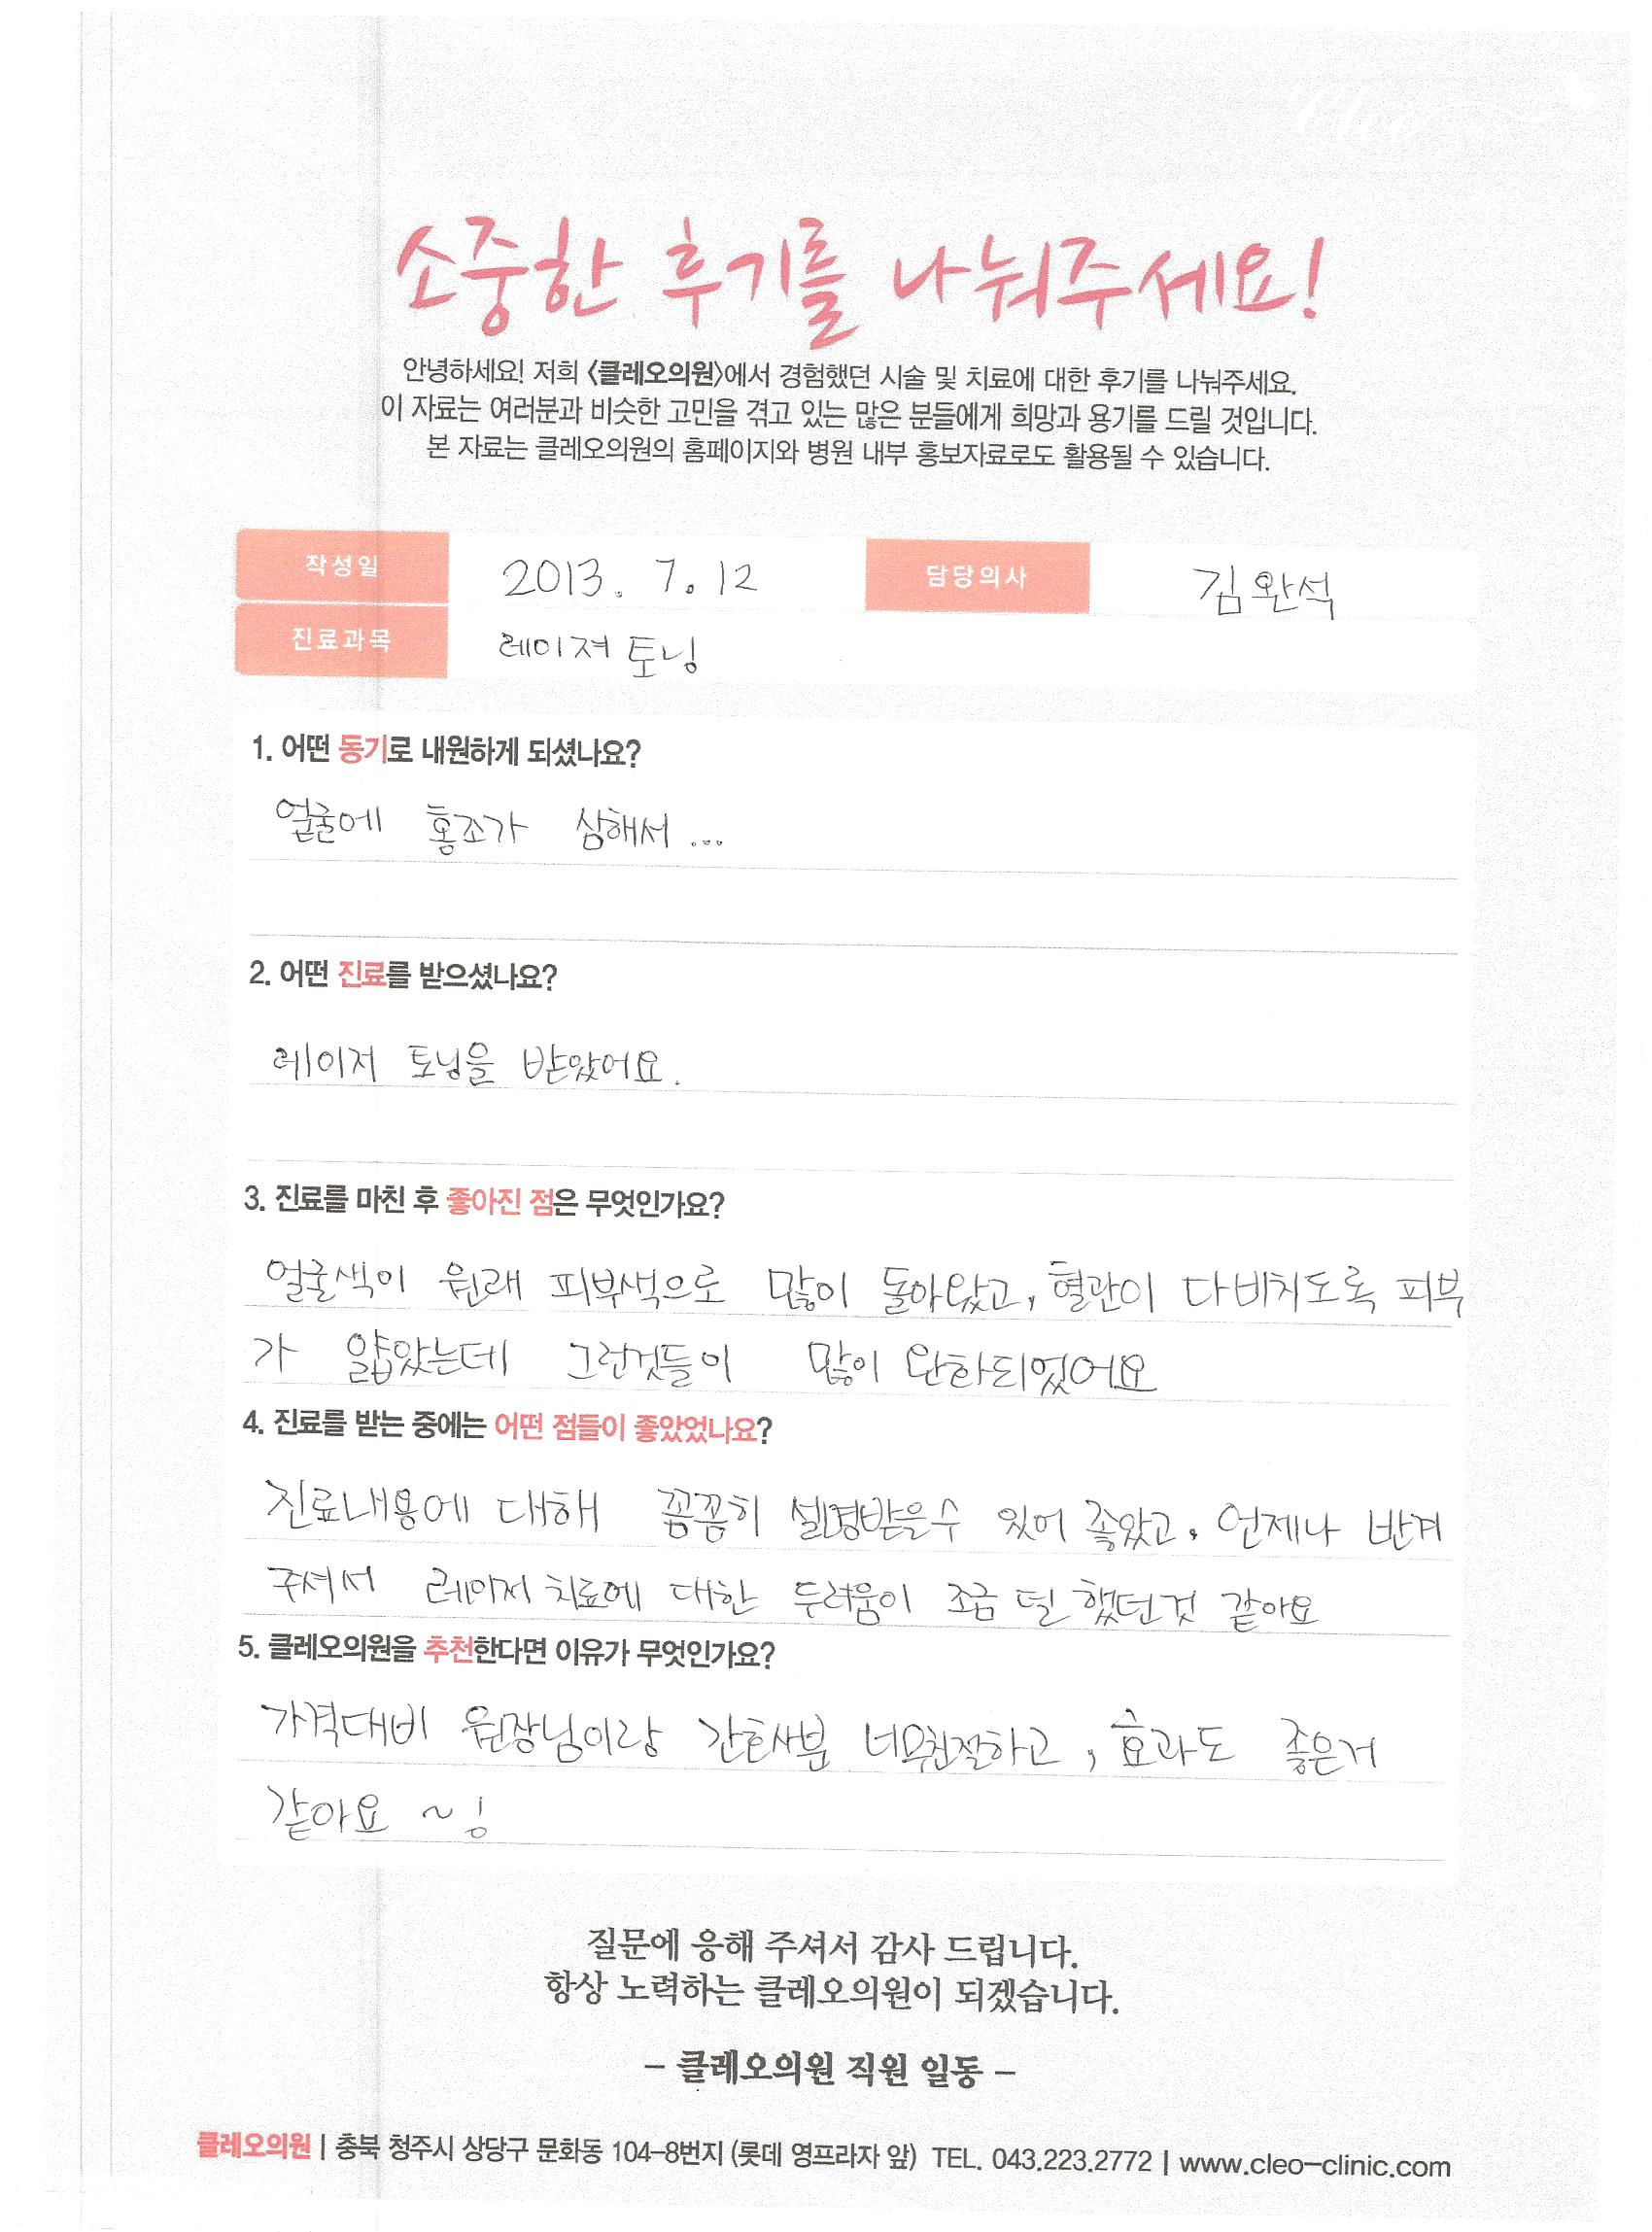 Cleo
소중한 후기를 나눠주세요!
안녕하세요! 저희 <클레오의원>에서 경험했던 시술 및 치료에 대한 후기를 나눠주세요.
이 자료는 여러분과 비슷한 고민을 겪고 있는 많은 분들에게 희망과 용기를 드릴 것입니다.
본 자료는 클레오의원의 홈페이지와 병원 내부 홍보자료로도 활용될 수 있습니다.
작성일 2013. 7. 12 담당의사 김완석
진료과목 레이져 토닝
1. 어떤 동기로 내원하게 되셨나요?
얼굴에 홍조가 심해서 ...
2. 어떤 진료를 받으셨나요?
레이저 토닝을 받았어요.
3. 진료를 마친 후 좋아진 점은 무엇인가요?
얼굴색이 원래 피부색으로 많이 돌아왔고, 혈관이 다비치도록 피부
가 얇았는데 그런것들이 많이 완화되었어요
4. 진료를 받는 중에는 어떤 점들이 좋았었나요?
진료내용에 대해 꼼꼼히 설명받을수 있어 좋았고, 언제나 반겨
주셔서 레이저 치료에 대한 두려움이 조금 덜 했던것 같아요
5. 클레오의원을 추천한다면 이유가 무엇인가요?
가격대비 원장님이랑 간호사분 너무친절하고, 효과도 좋은거
같아요 ~!
질문에 응해 주셔서 감사 드립니다.
항상 노력하는 클레오의원이 되겠습니다.
– 클레오의원 직원 일동 –
클레오의원 | 충북 청주시 상당구 문화동 104-8번지 (롯데 영프라자 앞) TEL. 043.223.2772 | www.cleo-clinic.com